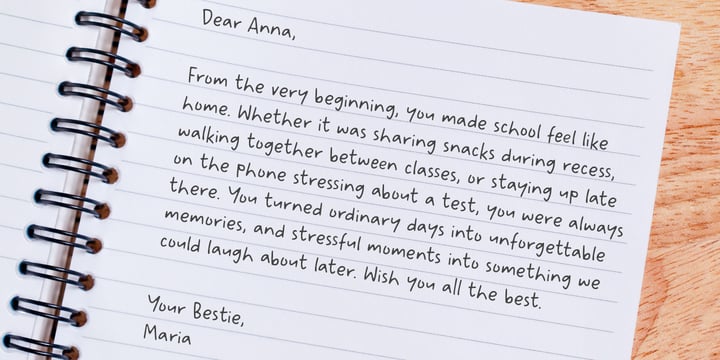 Dear Anna,
From the very beginning, you made school feel like
home. Whether it was sharing snacks during recess,
walking together between classes, or staying up late
on the phone stressing about a test, you were always
there. You turned ordinary days into unforgettable
memories, and stressful moments into something we
could laugh about later. Wish you all the best.
Your Bestie,
Maria